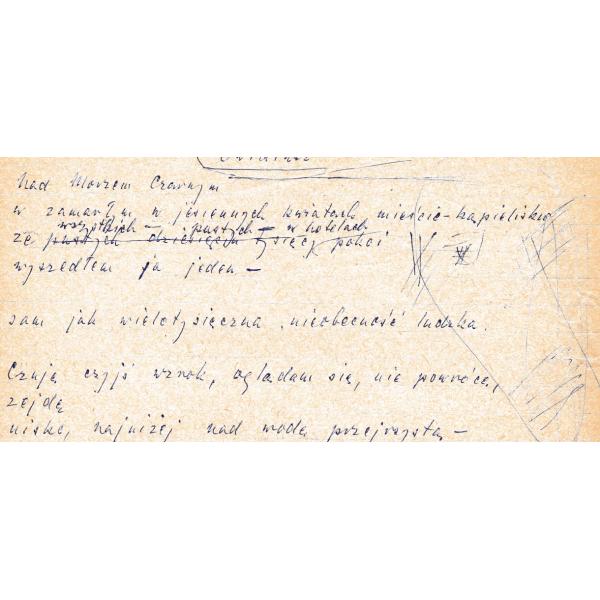 Nad Morzem Czarnym
w zamarłym w jesiennych kwiatach mieście-kąpielisku
wszystkich – pustych – w hotelach
ze pustych dziesięciu tysięcy pokoi
wyszedłem ja jeden –
sam jak wielotysięczna nieobecność ludzka.
Czuję czyjś wzrok, oglądam się, nie powrócę,
zejdę
nisko, najniżej nad wodę przejrzystą –